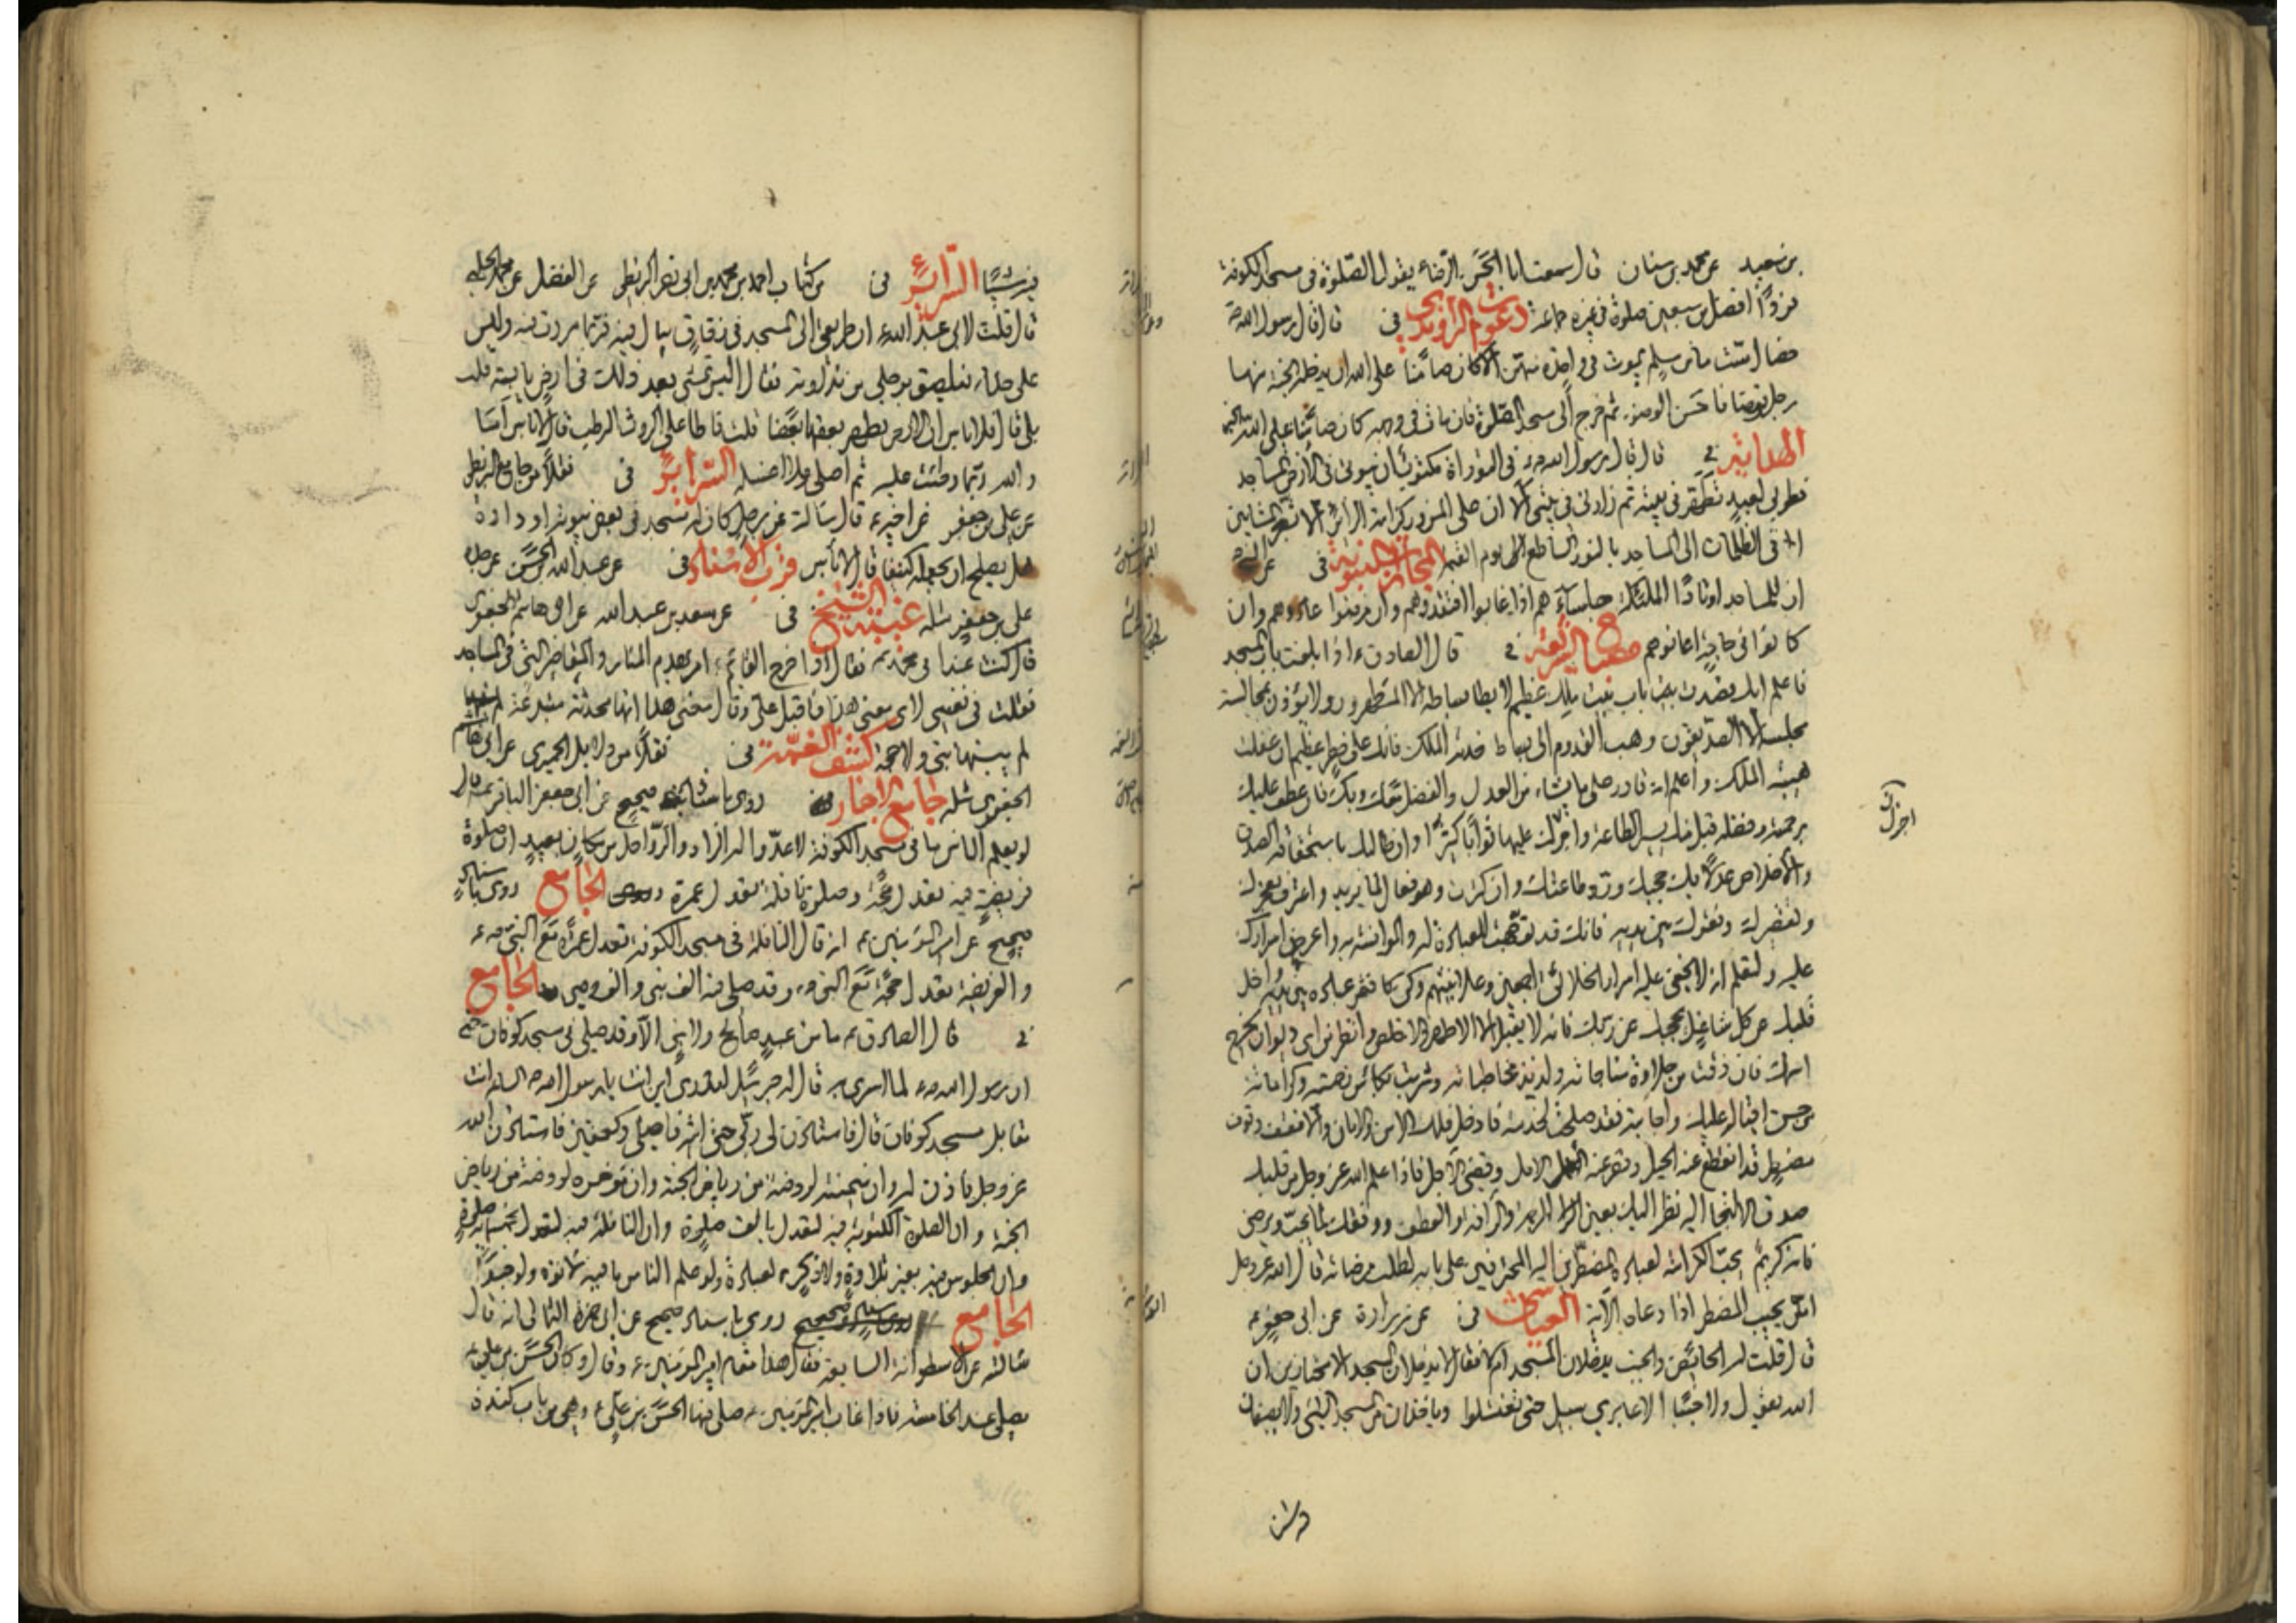 بن سعيد عن محمد بن سنان قال سمعت ابا الحسن الرضاء يقول الصلوة في مسجد الكوفة
فردًا افضل من سبعين صلوة في غيره جماعة دعوات الراوندي في قال قال رسول الله ص
ما من مسلم يموت في واحدة منهن الا كان ضامنا على الله ان يدخله الجنة منها
رجل توضا فاحسن الوضوء ثم خرج الى مسجد الصلوة فان مات في وجهه كان ضامنا على الله
الهداية في قال قال رسول الله ص في التوراة مكتوب ان بيوتي في الارض المساجد
فطوبى لعبد تطهر في بيته ثم زارني في بيتي الا ان على المزور كرامة الزائر الا بشر المشايين
في الظلمات الى المساجد بالنور الساطع يوم القيمة المجازات النبوية في عن
ان للمساجد اوتادًا الملئكة جلساؤهم اذا غابوا افتقدوهم وان مرضوا عادوهم وان
كانوا في حاجة اعانوهم مصباح الشريعة في قال الصادق ء اذا بلغت باب المسجد
فاعلم انك قصدت باب بيت ملك عظيم لا يطا بساطه الا المتطهرون ولا يؤذن لمجالسة
مجلسه الا الصديقون وهب القدوم الى بساط خدمة الملك فانك على خطر عظيم ان غفلت
هيبة الملك واعلم انه قادر على ما يشاء من العدل والفضل معك وبك فان عطف عليك
برحمته وفضله قبل منك يسير الطاعة واجزلك عليها ثوابًا كثيرًا وان طالبك باستحقاقه الصدق
والاخلاص عدلًا بك حجبك ورد طاعتك وان كثرت وهو فعال لما يريد واعترف بعجزك
وتقصيرك وفقرك بين يديه فانك قد توجهت للعبادة له والموانسة به واعرض اسرارك
عليه ولتعلم انه لا يخفى عليه اسرار الخلائق اجمعين وعلانيتهم وكن كافقر عباده بين يديه واخل
قلبك عن كل شاغل يحجبك عن ربك فانه لا يقبل الا الاطهر والاخلص وانظر من اي ديوان يخرج
اسمك فان ذقت من حلاوة مناجاته ولذيذ مخاطباته وشربت بكاس رحمته وكراماته
من حسن اقباله عليك واجابته فقد صلحت لخدمته فادخل فلك الامن والامان والا فقف وقوف
مضطر قد انقطع عنه الحيل وقصر عنه الامل وقضى الاجل فاذا علم الله عز وجل من قلبك
صدق الالتجا اليه نظر اليك بعين الرحمة والرافة والعطف ووفقك لما يحب ويرضى
فانه كريم يحب الكرامة لعباده المضطرين اليه المحترقين على بابه لطلب مرضاته قال الله عز وجل
امن يجيب المضطر اذا دعاه الاية العياشي في عن زرارة عن ابي جعفر ء
قال قلت له الحائض والجنب يدخلان المسجد ام لا فقال لا يدخلان المسجد الا مجتازين ان
الله يقول ولا جنبا الا عابري سبيل حتى تغتسلوا وياخذان من المسجد الشئ ولا يضعان
اجزل
فيه شيئًا السرائر في من كتاب احمد بن محمد بن ابي نصر البزنطي عن الفضل عن محمد الحلبي
قال قلت لابي عبد الله ء ان طريقي الى المسجد في زقاق يبال فيه فربما مررت فيه وليس
على حذاء فيلصق برجلي من نداوته فقال اليس تمشي بعد ذلك في ارض يابسة قلت
بلى قال فلا باس ان الارض يطهر بعضها بعضًا قلت فاطا على الروث الرطب قال لا باس انا
والله ربما وطئت عليه ثم اصلي ولا اغسله السرائر في نقلًا من جامع البزنطي
عن علي بن جعفر عن اخيه ء قال سالته عن رجل كان له مسجد في بعض بيوته او داره
هل يصلح ان يجعله كنيفا قال لا باس قرب الاسناد في عن عبد الله بن الحسن عن جده
علي بن جعفر مثله غيبة الشيخ في عن سعد بن عبد الله عن ابي هاشم الجعفري
قال كنت عند ابي محمد ء فقال اذا خرج القائم ء امر بهدم المنار والمقاصير التي في المساجد
فقلت في نفسي لاي معنى هذا فاقبل علي وقال معنى هذا انها محدثة مبتدعة
لم يبنها نبي ولا حجة كشف الغمة في نقلا من دلائل الحميري عن ابي هاشم
الجعفري مثله جامع الاخبار روى باسناد صحيح عن ابي جعفر الباقر ء قال
لو يعلم الناس ما في مسجد الكوفة لاعدوا له الزاد والرواحل من مكان بعيد ان صلوة
فريضة فيه تعدل حجة وصلوة نافلة تعدل عمرة الجامع روى باسناد
صحيح عن امير المؤمنين ء انه قال النافلة في مسجد الكوفة تعدل عمرة مع النبي ص
والفريضة تعدل حجة مع النبي ص وقد صلى فيه الف نبي والف وصي الجامع
في قال الصادق ء ما من عبد صالح ولا نبي الا وقد صلى في مسجد كوفان حتى
ان رسول الله ص لما اسري به قال له جبرئيل اتدري اين انت يا رسول الله ص الساعة انت
مقابل مسجد كوفان قال فاستاذن لي ربي حتى اتيه فاصلي ركعتين فاستاذن الله
عز وجل فاذن له وان ميمنته لروضة من رياض الجنة وان مؤخره لروضة من رياض
الجنة وان الصلوة المكتوبة فيه لتعدل بالف صلوة وان النافلة فيه لتعدل بخمسمائة صلوة
وان الجلوس فيه بغير تلاوة ولا ذكر لعبادة ولو علم الناس ما فيه لاتوه ولو حبوًا
الجامع روى باسناد صحيح عن ابي حمزة الثمالي انه قال
سالته عن الاسطوانة السابعة فقال هذا مقام امير المؤمنين ء وقال وكان الحسن بن علي ء
يصلي عند الخامسة فاذا غاب امير المؤمنين ء صلى فيها الحسن بن علي ء وهي من باب كندة